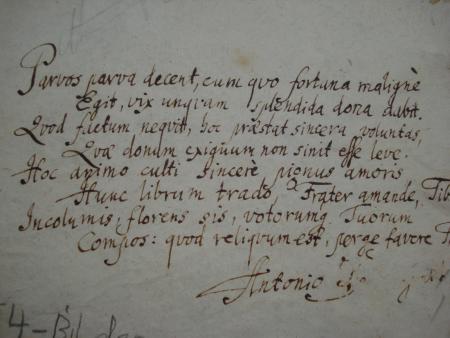 Parvos parva decent, cum quo fortuna malignè
Egit, vix unquam splendida dona dabit.
Quod factum nequit, hoc præstat sincera voluntas,
Quæ donum exiguum non sinit esse leve.
Hoc animo culti sincerè, pignus amoris
Hunc librum trado, Frater amande, Tib
Incolumis, florens sis, votorumq Tuorum
Compos: quod reliquum est, perge favere
Antonio
4-Bil